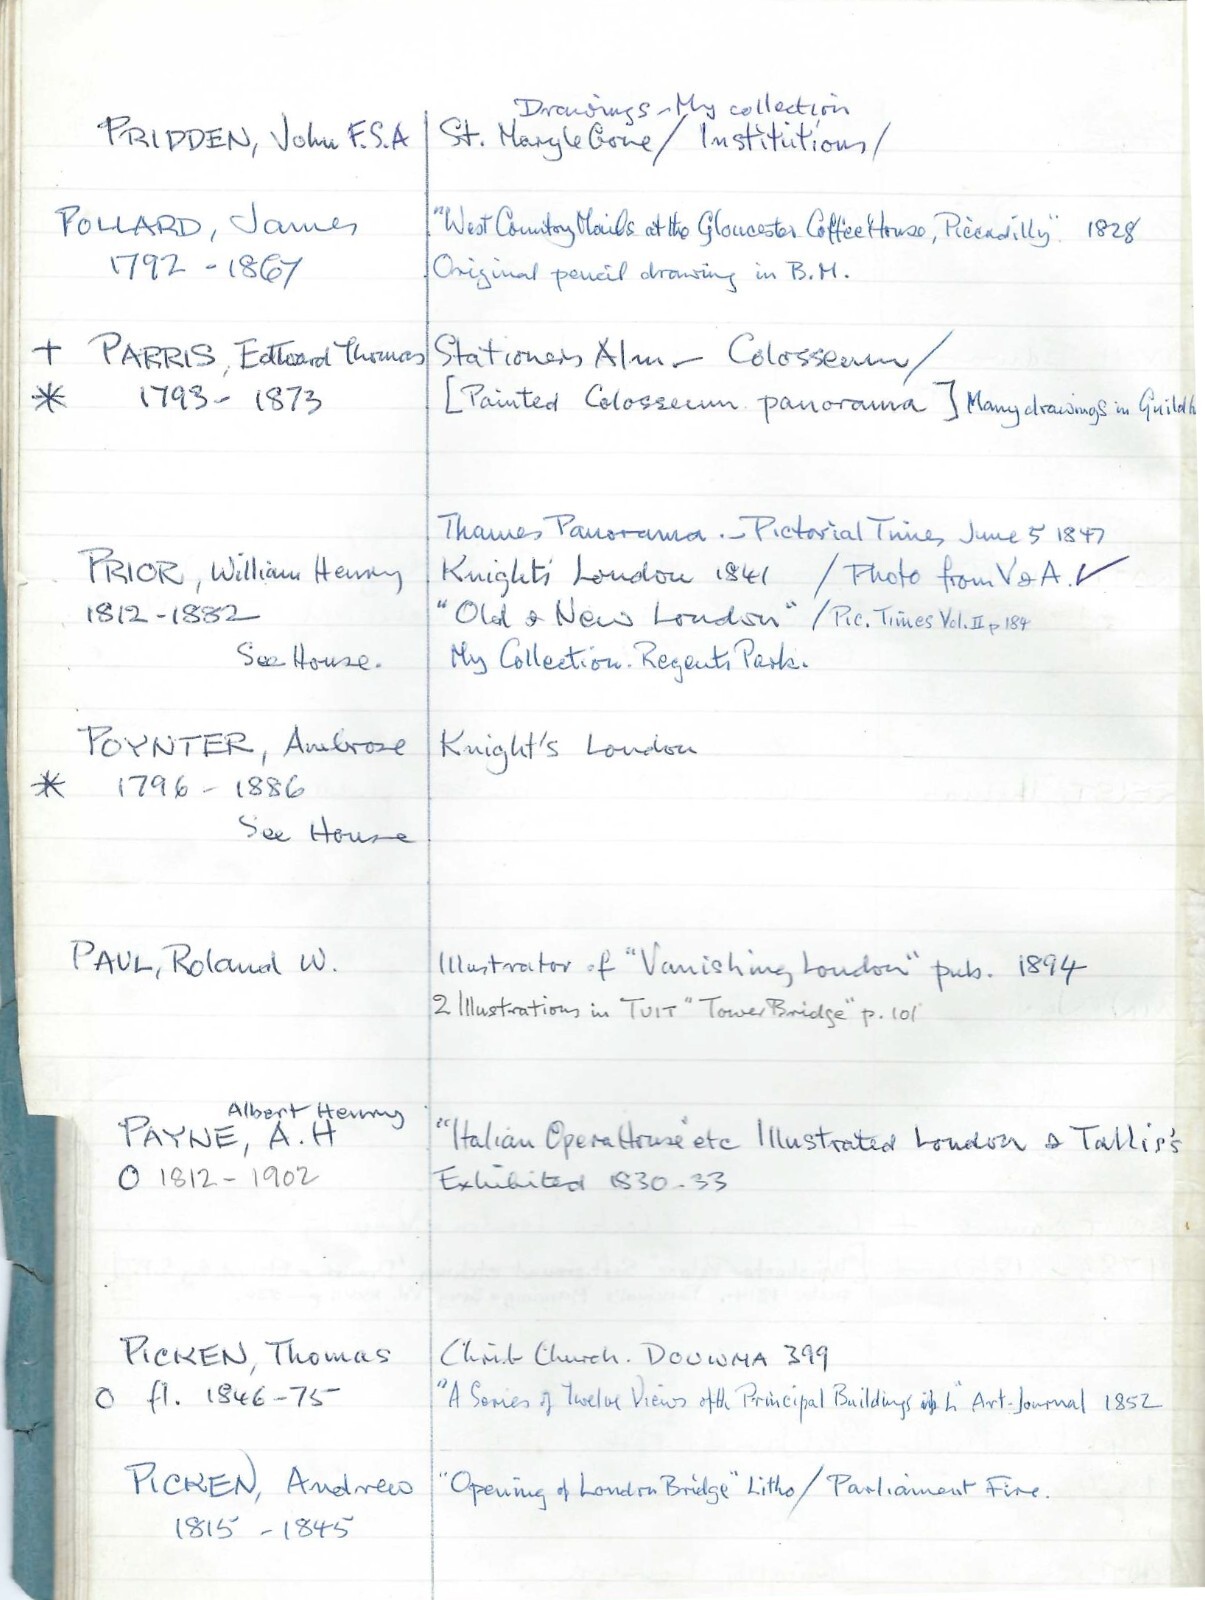 Drawings - My collection
PRIDDEN, John F.S.A St. Marylebone / Institutions /
POLLARD, James "West Country Mails at the Gloucester Coffee House, Piccadilly" 1828
1792 - 1867 Original pencil drawing in B.M.
+ PARRIS, Edward Thomas Stationers Alm - Colosseum /
* 1793 - 1873 [Painted Colosseum panorama] Many drawings in Guildh
Thames Panorama - Pictorial Times June 5 1847
PRIOR, William Henry Knight's London 1841 / Photo from V & A. ✓
1812 - 1882 "Old & New London" / Pic. Times Vol. II p 184
See House. My Collection. Regents Park.
POYNTER, Ambrose Knight's London
* 1796 - 1886
See House
PAUL, Roland W. Illustrator of "Vanishing London" pub. 1894
2 Illustrations in TUIT "Tower Bridge" p. 101
Albert Henry
PAYNE, A.H "Italian Opera House" etc Illustrated London & Tallis's
O 1812 - 1902 Exhibited 1830-33
PICKEN, Thomas Christ Church. DOUWMA 399
O fl. 1846-75 "A Series of Twelve Views of the Principal Buildings in L" Art-Journal 1852
PICKEN, Andrew "Opening of London Bridge" Litho / Parliament Fire.
1815 - 1845